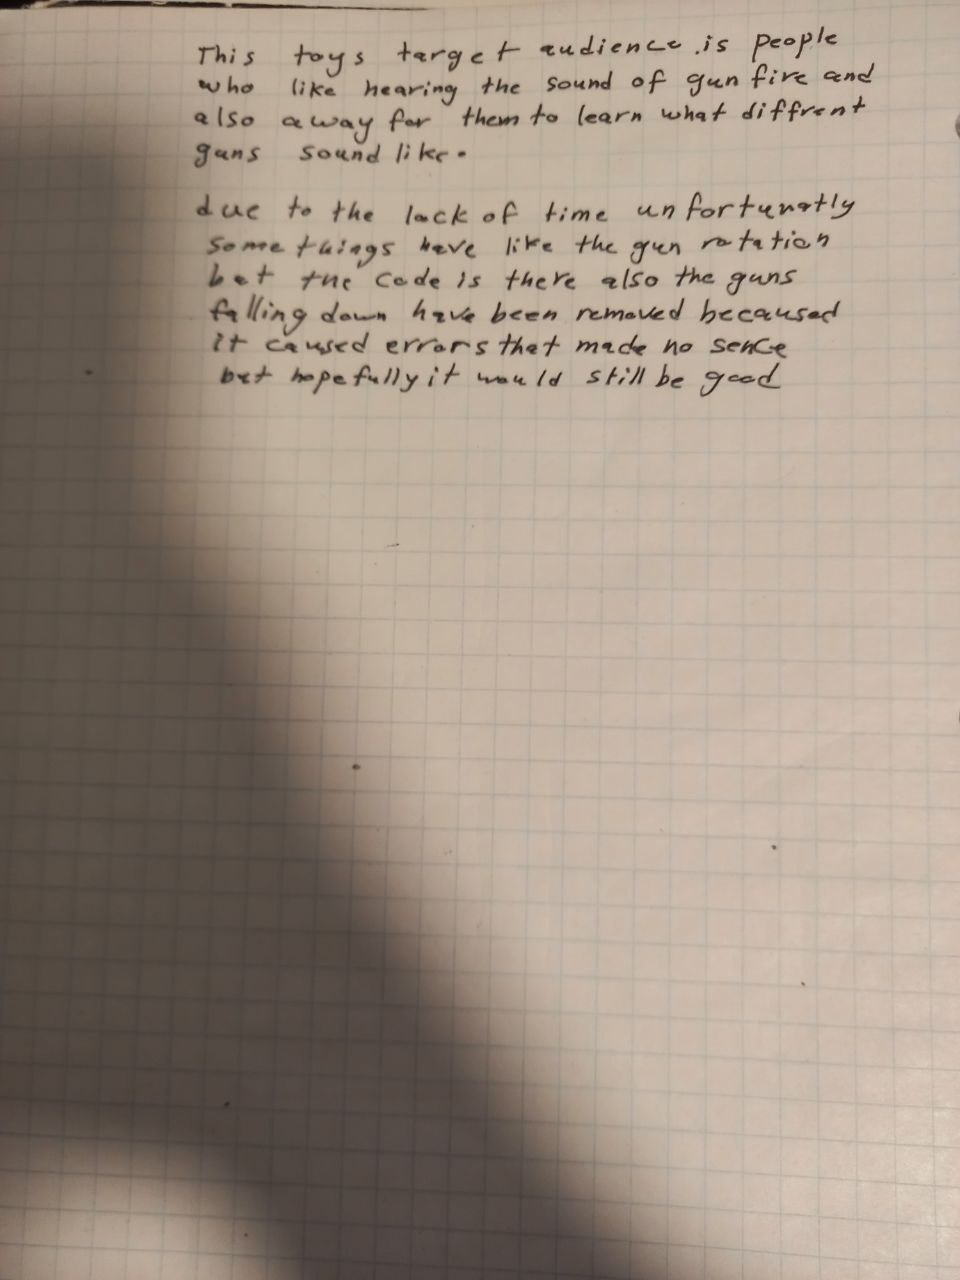 This toys target audience is people
who like hearing the sound of gun fire and
also away for them to learn what diffrent
guns sound like.
due to the lack of time unfortunatly
some things have like the gun rotation
but the code is there also the guns
falling down have been removed becaused
it caused errors that made no sence
but hopefully it would still be good